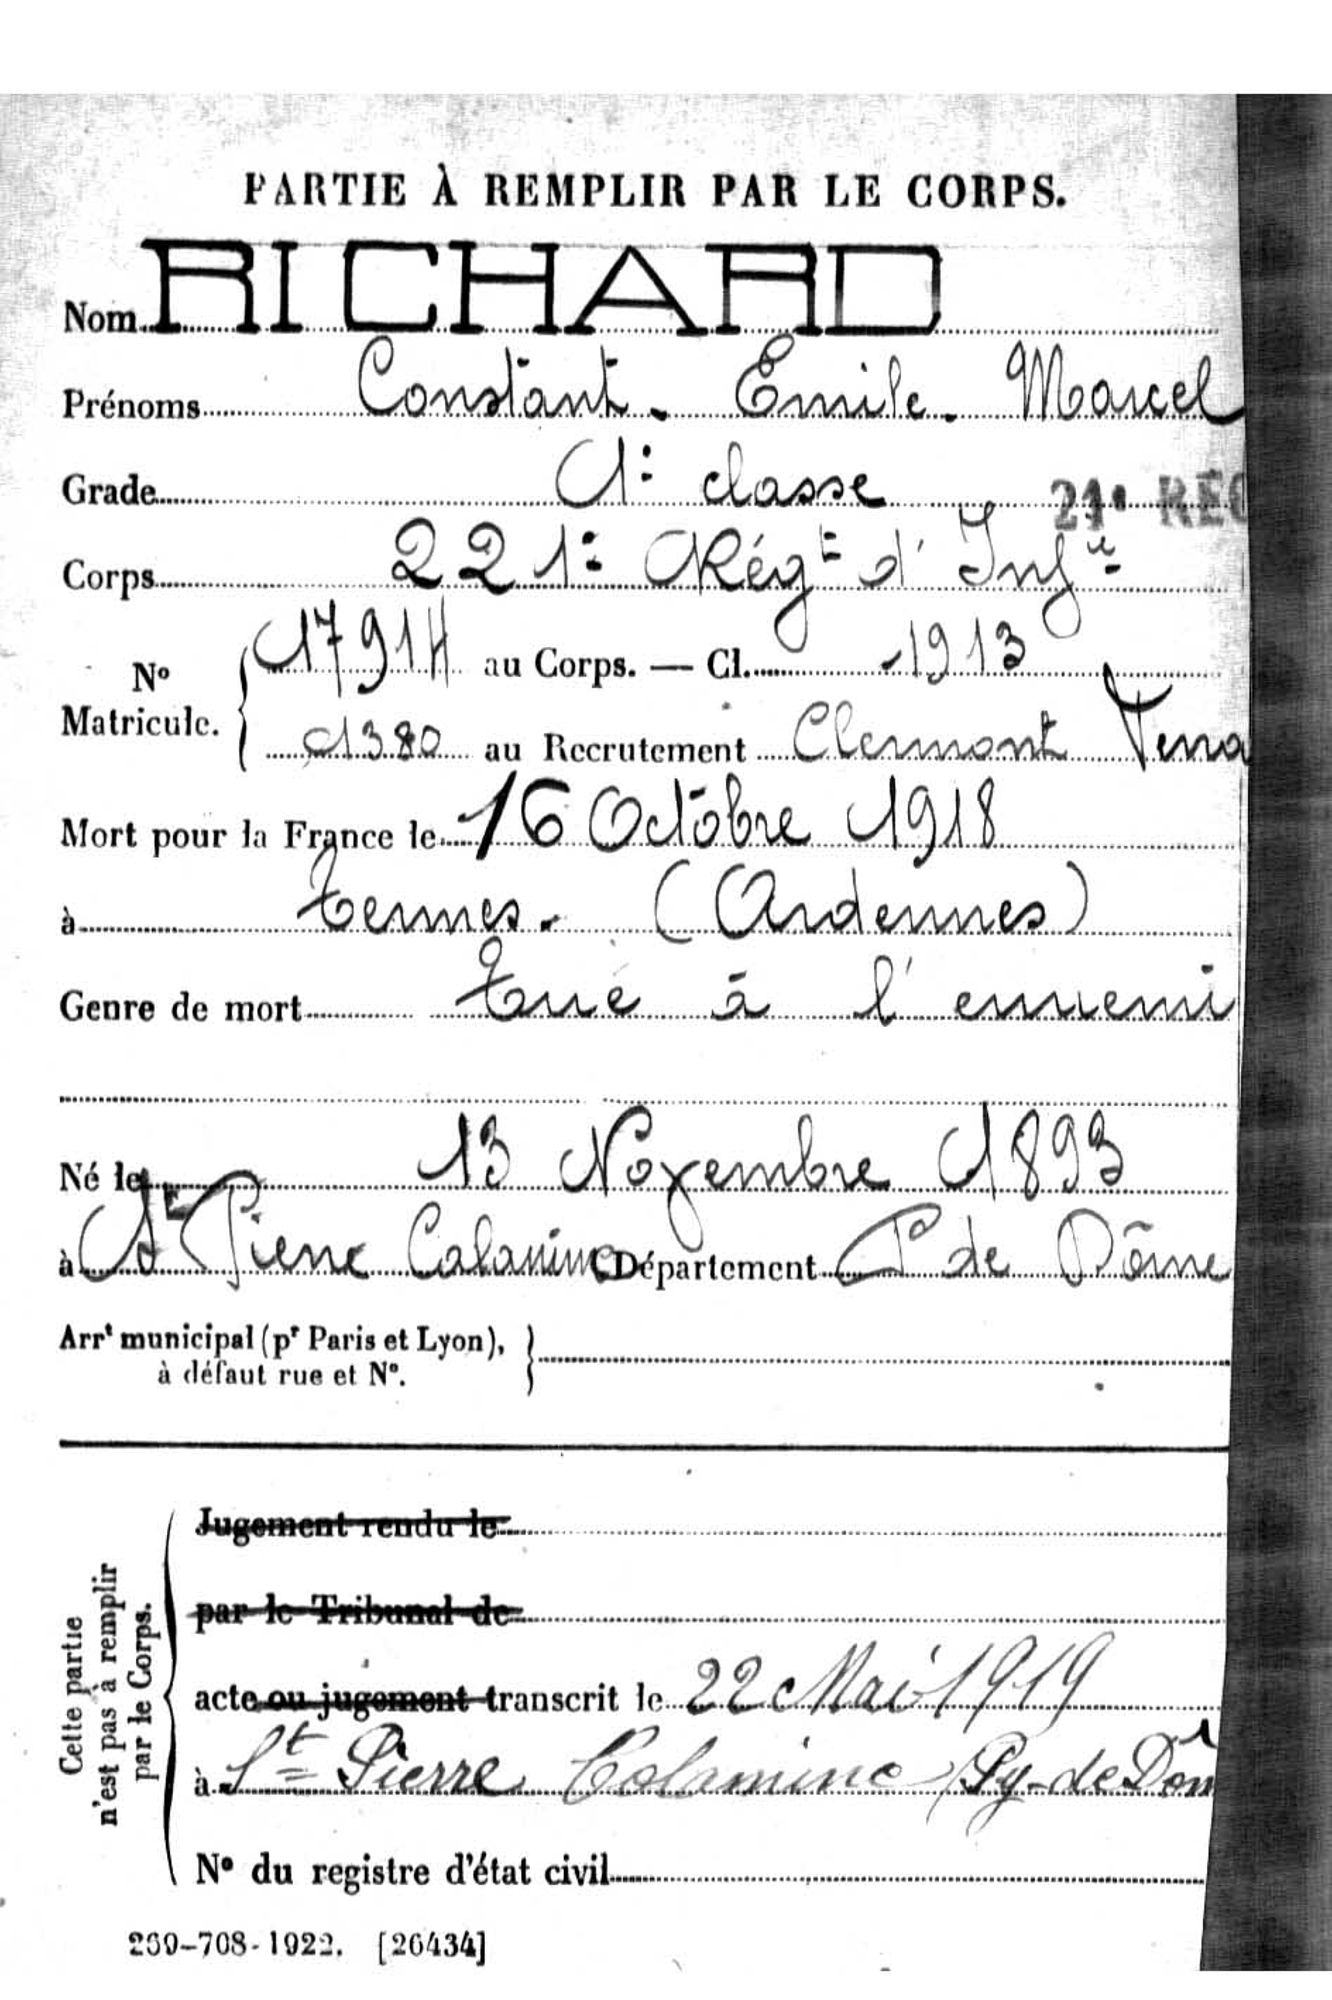 PARTIE À REMPLIR PAR LE CORPS.
Nom RICHARD
Prénoms Constant. Emile. Marcel
Grade 1e classe
21e RÉG
Corps 221e Régt d'Infie
No Matricule. { 17914 au Corps. — Cl. 1913
1380 au Recrutement Clermont
Mort pour la France le 16 Octobre 1918
à Termes. (Ardennes)
Genre de mort Tué à l'ennemi
Né le 13 Novembre 1893
à St Pierre Colamine Département P de Dôme
Arrt municipal (pr Paris et Lyon),
à défaut rue et No.
Cette partie n'est pas à remplir par le Corps.
Jugement rendu le
par le Tribunal de
acte ou jugement transcrit le 22 Mai 1919
à St Pierre Colamine (Py-de Dôm
No du registre d'état civil
269-708-1922. [26434]